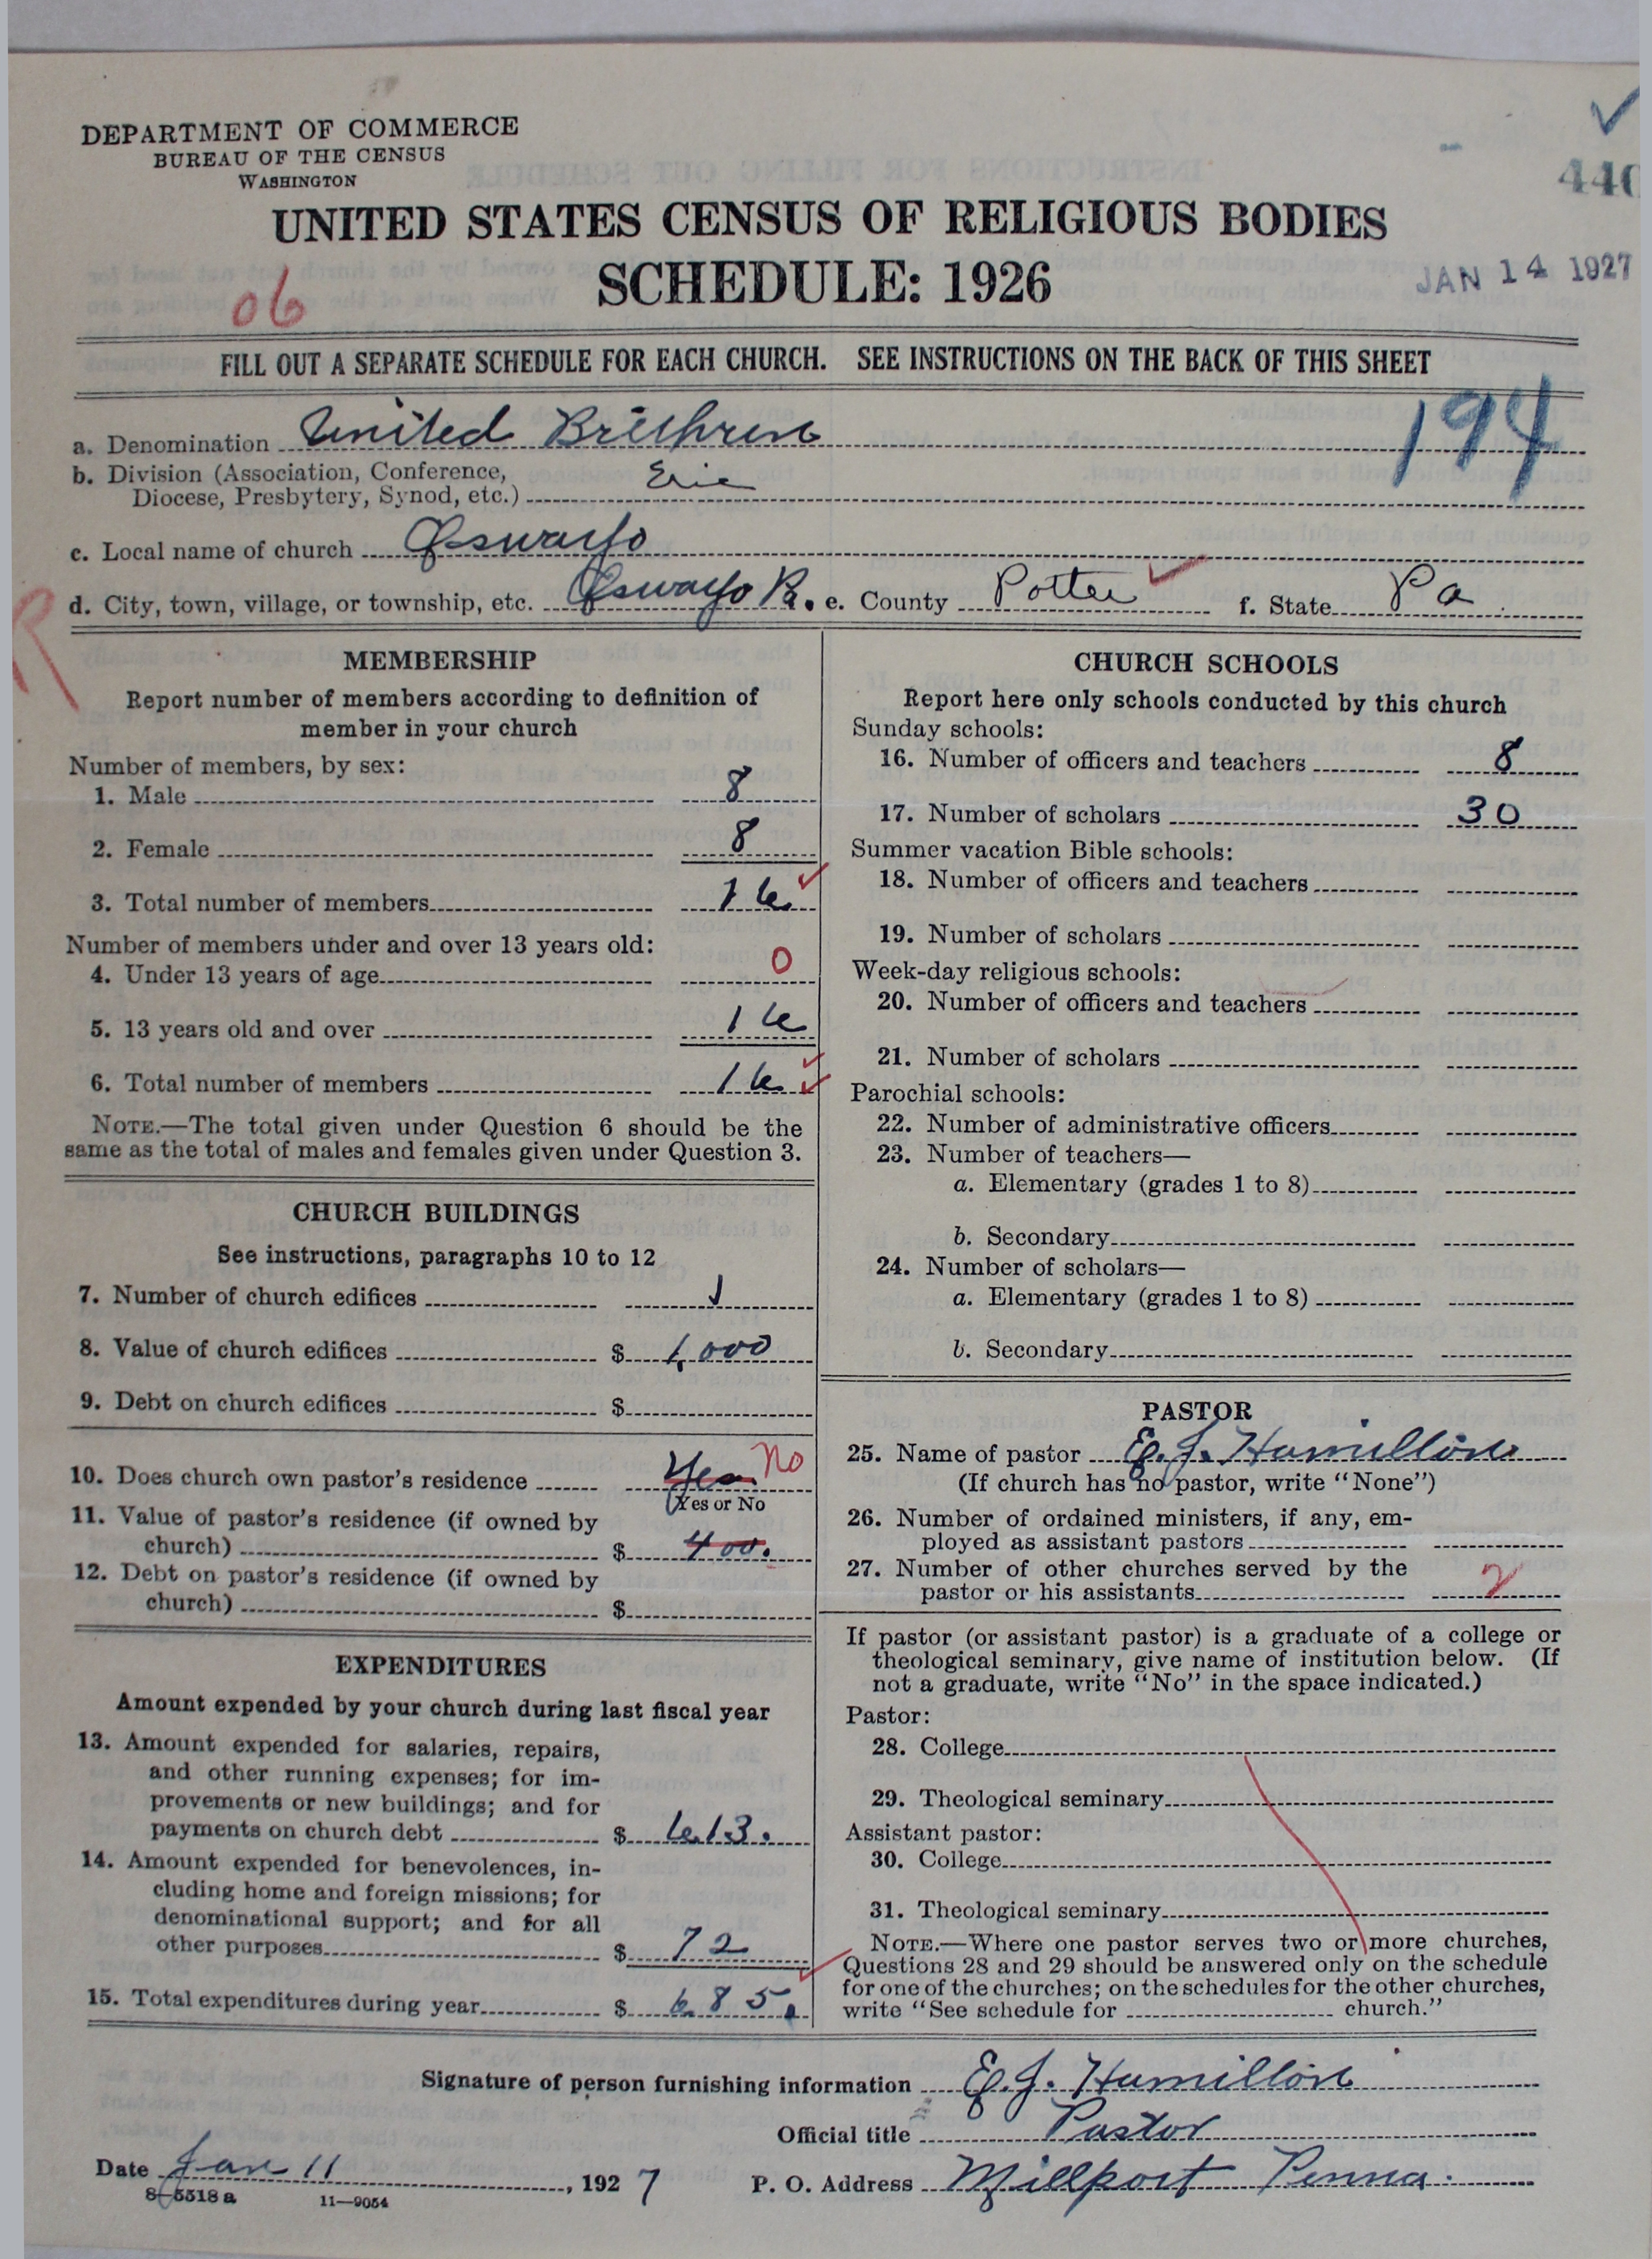 DEPARTMENT OF COMMERCE
BUREAU OF THE CENSUS
WASHINGTON
440
UNITED STATES CENSUS OF RELIGIOUS BODIES
SCHEDULE: 1926
JAN 14 1927
06
FILL OUT A SEPARATE SCHEDULE FOR EACH CHURCH. SEE INSTRUCTIONS ON THE BACK OF THIS SHEET
194
a. Denomination United Brethren
b. Division (Association, Conference,
Diocese, Presbytery, Synod, etc.) Erie
c. Local name of church Oswayo
d. City, town, village, or township, etc. Oswayo B. e. County Potter f. State Pa
R
MEMBERSHIP
Report number of members according to definition of
member in your church
Number of members, by sex:
1. Male 8
2. Female 8
3. Total number of members 16
Number of members under and over 13 years old:
4. Under 13 years of age 0
5. 13 years old and over 16
6. Total number of members 16
NOTE.—The total given under Question 6 should be the
same as the total of males and females given under Question 3.
CHURCH BUILDINGS
See instructions, paragraphs 10 to 12
7. Number of church edifices 1
8. Value of church edifices $ 1,000
9. Debt on church edifices $
10. Does church own pastor's residence Yes No
(Yes or No
11. Value of pastor's residence (if owned by
church) $ 400.
12. Debt on pastor's residence (if owned by
church) $
EXPENDITURES
Amount expended by your church during last fiscal year
13. Amount expended for salaries, repairs,
and other running expenses; for im-
provements or new buildings; and for
payments on church debt $ 613.
14. Amount expended for benevolences, in-
cluding home and foreign missions; for
denominational support; and for all
other purposes $ 72
15. Total expenditures during year $ 685.
CHURCH SCHOOLS
Report here only schools conducted by this church
Sunday schools:
16. Number of officers and teachers 8
17. Number of scholars 30
Summer vacation Bible schools:
18. Number of officers and teachers
19. Number of scholars
Week-day religious schools:
20. Number of officers and teachers
21. Number of scholars
Parochial schools:
22. Number of administrative officers
23. Number of teachers—
a. Elementary (grades 1 to 8)
b. Secondary
24. Number of scholars—
a. Elementary (grades 1 to 8)
b. Secondary
PASTOR
25. Name of pastor E. J. Hamilton
(If church has no pastor, write "None")
26. Number of ordained ministers, if any, em-
ployed as assistant pastors
27. Number of other churches served by the
pastor or his assistants 2
If pastor (or assistant pastor) is a graduate of a college or
theological seminary, give name of institution below. (If
not a graduate, write "No" in the space indicated.)
Pastor:
28. College
29. Theological seminary
Assistant pastor:
30. College
31. Theological seminary
NOTE.—Where one pastor serves two or more churches,
Questions 28 and 29 should be answered only on the schedule
for one of the churches; on the schedules for the other churches,
write "See schedule for church."
Signature of person furnishing information E. J. Hamilton
Official title Pastor
Date Jan 11, 1927 P. O. Address Millport Penna.
8-5518 a 11-9054